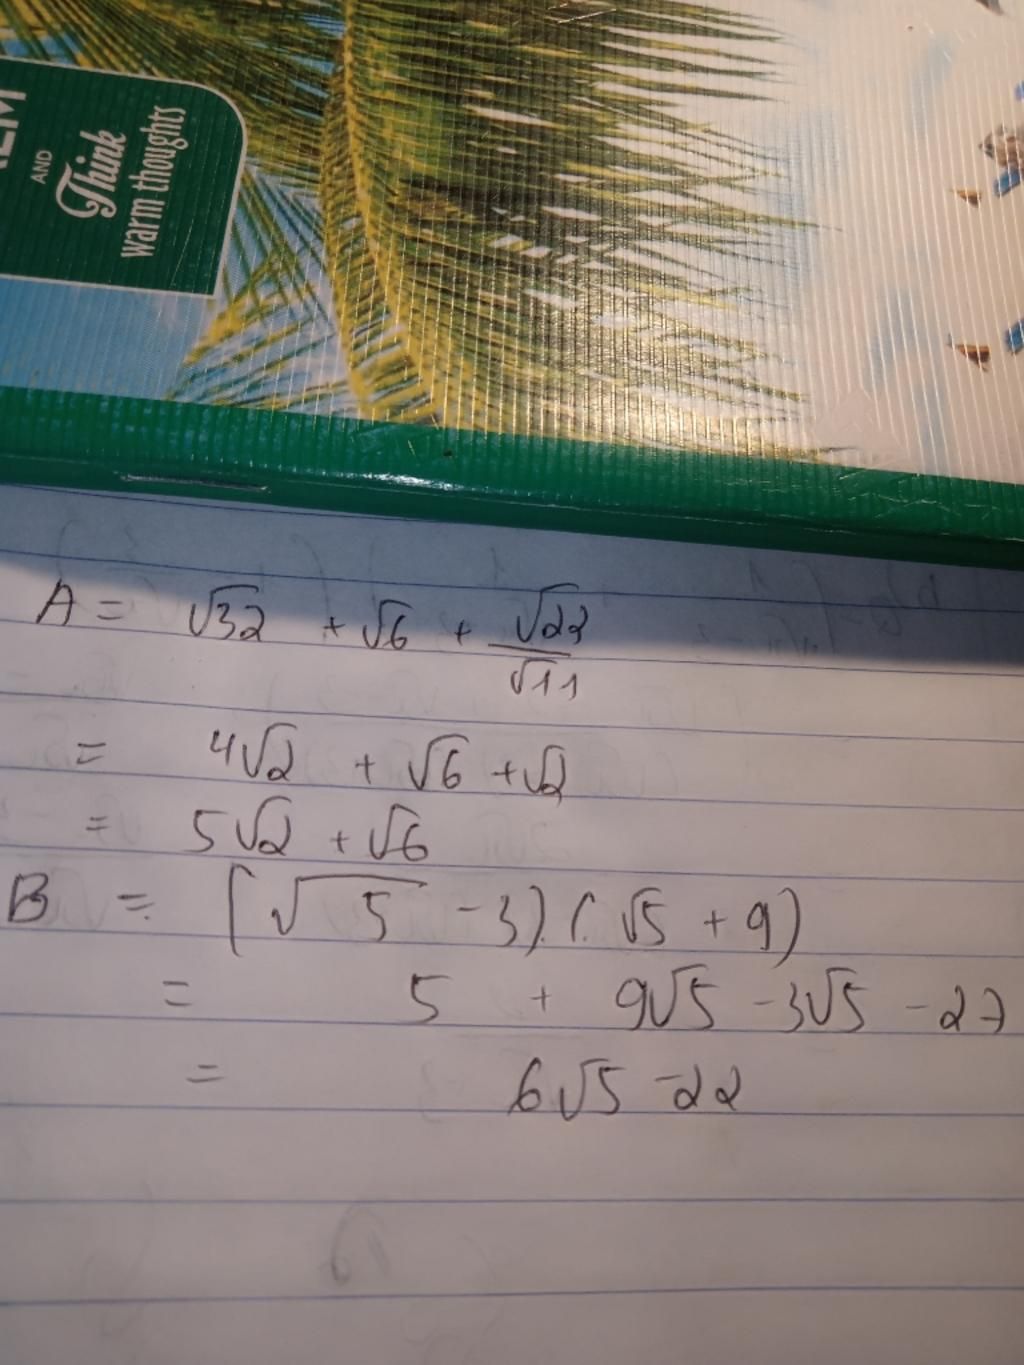 AND
Think
warm thoughts
A = √32 + √6 + √22/√11
= 4√2 + √6 + √2
= 5√2 + √6
B = (√5 - 3).(√5 + 9)
= 5 + 9√5 - 3√5 - 27
= 6√5 - 22